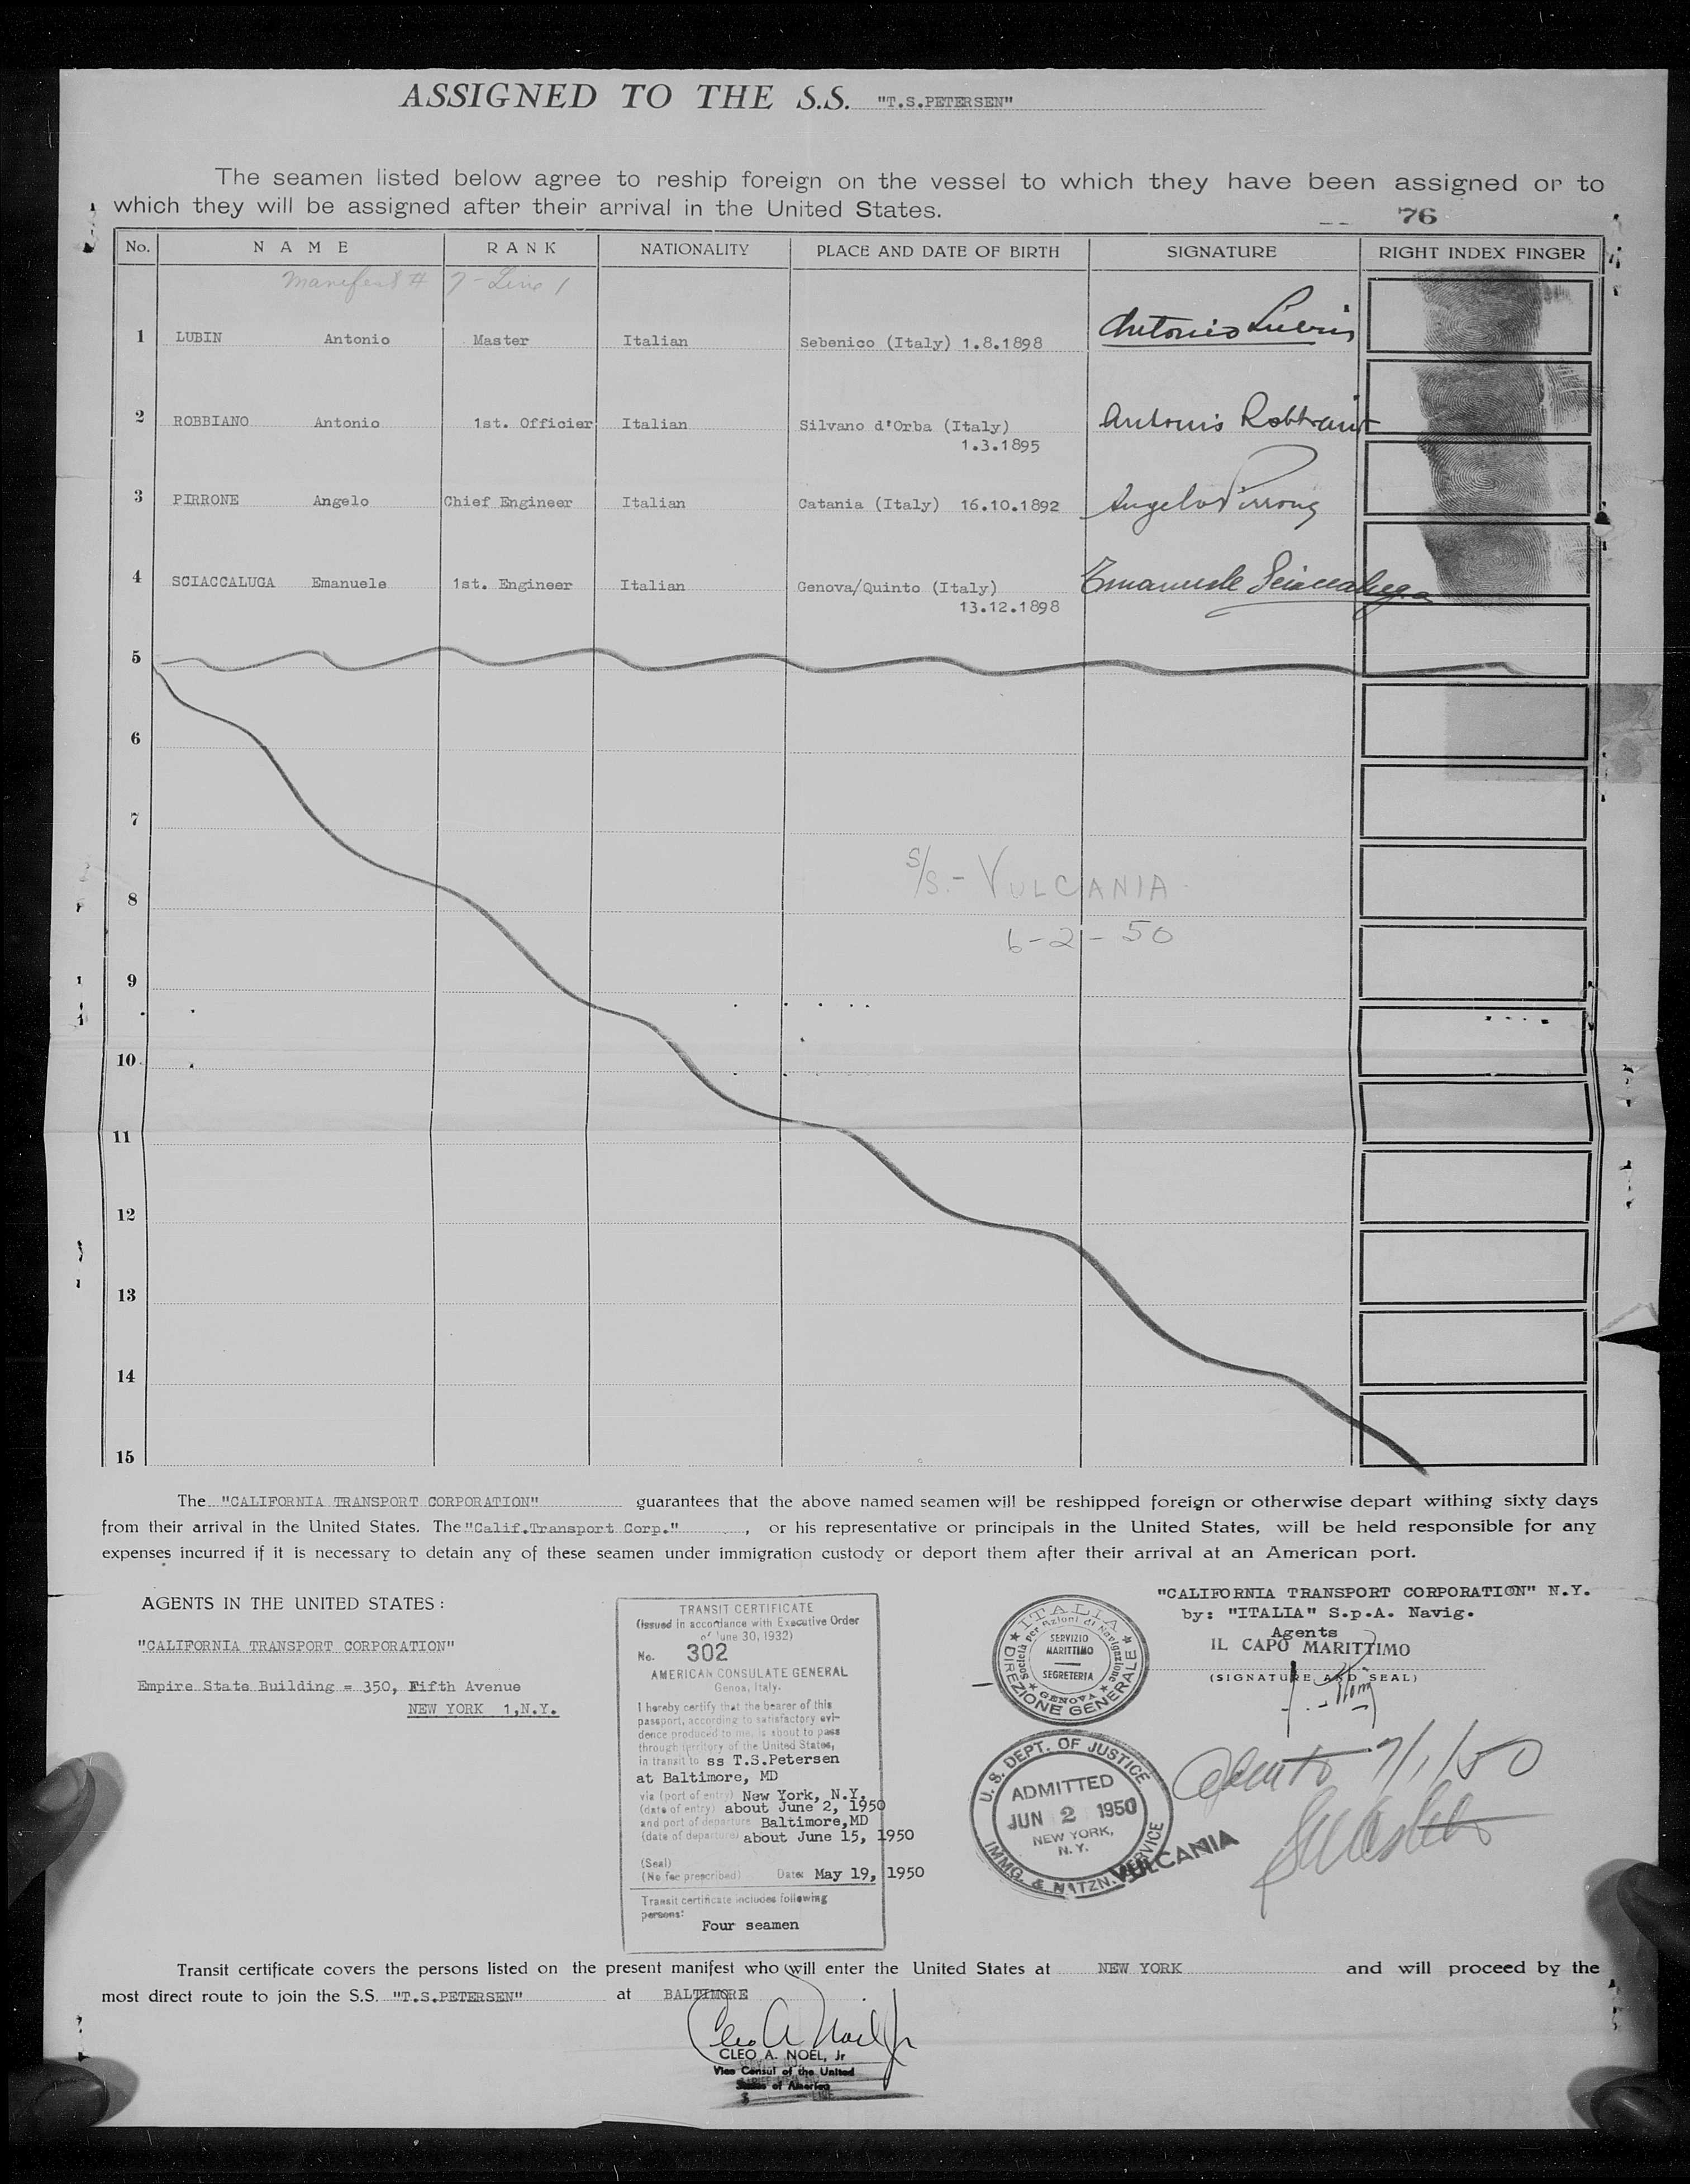 ASSIGNED TO THE S.S. "T.S.PETERSEN"
The seamen listed below agree to reship foreign on the vessel to which they have been assigned or to
which they will be assigned after their arrival in the United States.
76
No. NAME RANK NATIONALITY PLACE AND DATE OF BIRTH SIGNATURE RIGHT INDEX FINGER
Manifest # 7 - Line 1
1 LUBIN Antonio Master Italian Sebenico (Italy) 1.8.1898 Antonio Lubin
2 ROBBIANO Antonio 1st. Officier Italian Silvano d'Orba (Italy) Antonio Robbiano
1.3.1895
3 PIRRONE Angelo Chief Engineer Italian Catania (Italy) 16.10.1892 Angelo Pirrone
4 SCIACCALUGA Emanuele 1st. Engineer Italian Genova/Quinto (Italy) Emanuele Sciaccaluga
13.12.1898
5
6
7
S/S.- VULCANIA
8
6-2-50
9
10
11
12
13
14
15
The "CALIFORNIA TRANSPORT CORPORATION" guarantees that the above named seamen will be reshipped foreign or otherwise depart withing sixty days
from their arrival in the United States. The "Calif.Transport Corp." , or his representative or principals in the United States, will be held responsible for any
expenses incurred if it is necessary to detain any of these seamen under immigration custody or deport them after their arrival at an American port.
AGENTS IN THE UNITED STATES :
"CALIFORNIA TRANSPORT CORPORATION"
Empire State Building = 350, Fifth Avenue
NEW YORK 1,N.Y.
TRANSIT CERTIFICATE
(Issued in accordance with Executive Order
of June 30, 1932)
No. 302
AMERICAN CONSULATE GENERAL
Genoa, Italy.
I hereby certify that the bearer of this
passport, according to satisfactory evi-
dence produced to me, is about to pass
through territory of the United States,
in transit to ss T.S.Petersen
at Baltimore, MD
via (port of entry) New York, N.Y.
(date of entry) about June 2, 1950
and port of departure Baltimore,MD
(date of departure) about June 15, 1950
(Seal)
(No fee prescribed) Date: May 19, 1950
Transit certificate includes following
persons:
Four seamen
ITALIA
Società per Azioni di Navigazione
SERVIZIO
MARITTIMO
SEGRETERIA
GENOVA
DIREZIONE GENERALE
"CALIFORNIA TRANSPORT CORPORATION" N.Y.
by: "ITALIA" S.p.A. Navig.
Agents
IL CAPO MARITTIMO
(SIGNATURE AND SEAL)
U.S. DEPT. OF JUSTICE
ADMITTED
JUN 2 1950
NEW YORK,
N. Y.
IMMG. & NATZN. SERVICE
VULCANIA
7/1/50
Transit certificate covers the persons listed on the present manifest who will enter the United States at NEW YORK and will proceed by the
most direct route to join the S.S. "T.S.PETERSEN" at BALTIMORE
Cleo A Noel Jr
CLEO A. NOEL, Jr
Vice Consul of the United
States of America